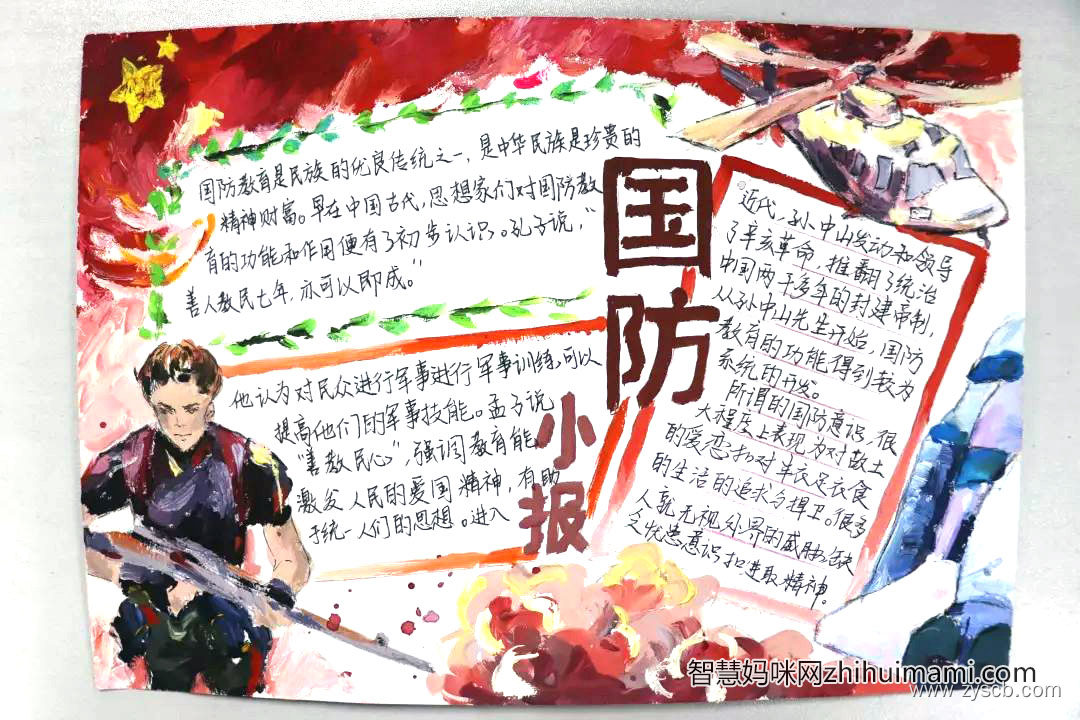 国防教育是民族的优良传统之一，是中华民族是珍贵的
精神财富。早在中国古代，思想家们对国防教
育的功能和作用便有了初步认识。孔子说，“
善人教民七年，亦可以即戎。”
他认为对民众进行军事进行军事训练，可以
提高他们的军事技能。孟子说
“善教民心”，强调教育能
激发人民的爱国精神，有助
于统一人们的思想。进入
国防
小报
近代，孙中山发动和领导
了辛亥革命，推翻了统治
中国两千多年的封建帝制，
从孙中山先生开始，国防
教育的功能得到较为
系统的开发。
所谓的国防意识，很
大程度上表现为对故土
的爱恋和对丰衣足衣食
的生活的追求与捍卫。很多
人就无视外界的威胁，缺
乏忧患意识和进取精神。
智慧妈咪网zhihuimami.com
www.zyscb.com